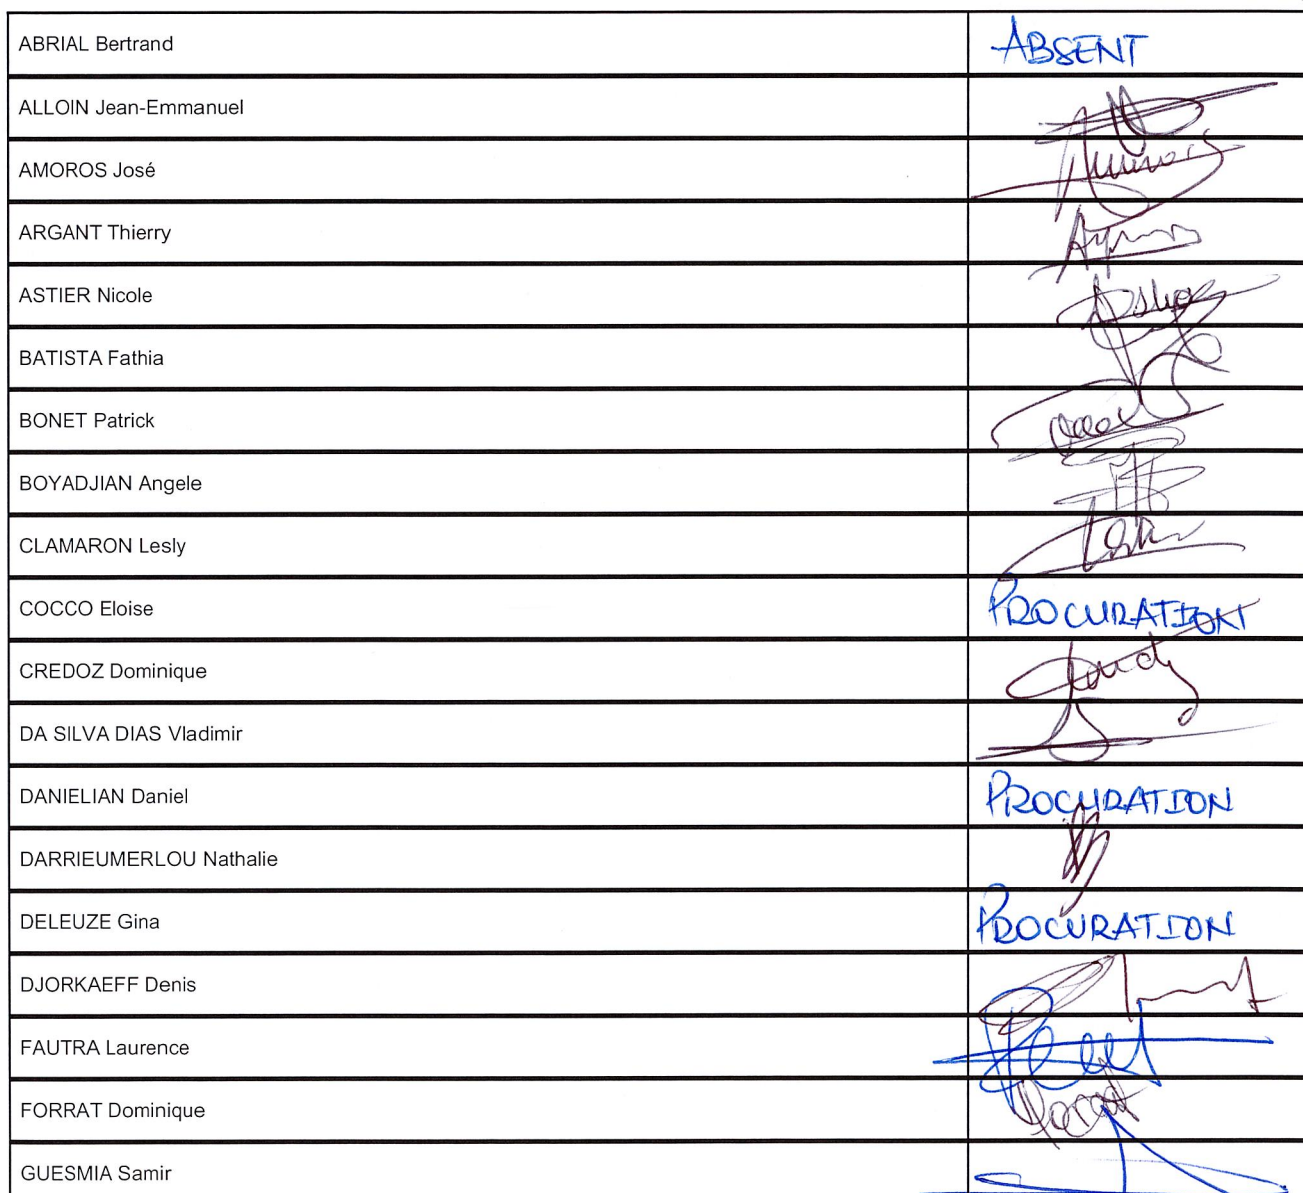 ABRIAL Bertrand ABSENT
ALLOIN Jean-Emmanuel
AMOROS José
ARGANT Thierry
ASTIER Nicole
BATISTA Fathia
BONET Patrick
BOYADJIAN Angele
CLAMARON Lesly
COCCO Eloise PROCURATION
CREDOZ Dominique
DA SILVA DIAS Vladimir
DANIELIAN Daniel PROCURATION
DARRIEUMERLOU Nathalie
DELEUZE Gina PROCURATION
DJORKAEFF Denis
FAUTRA Laurence
FORRAT Dominique
GUESMIA Samir